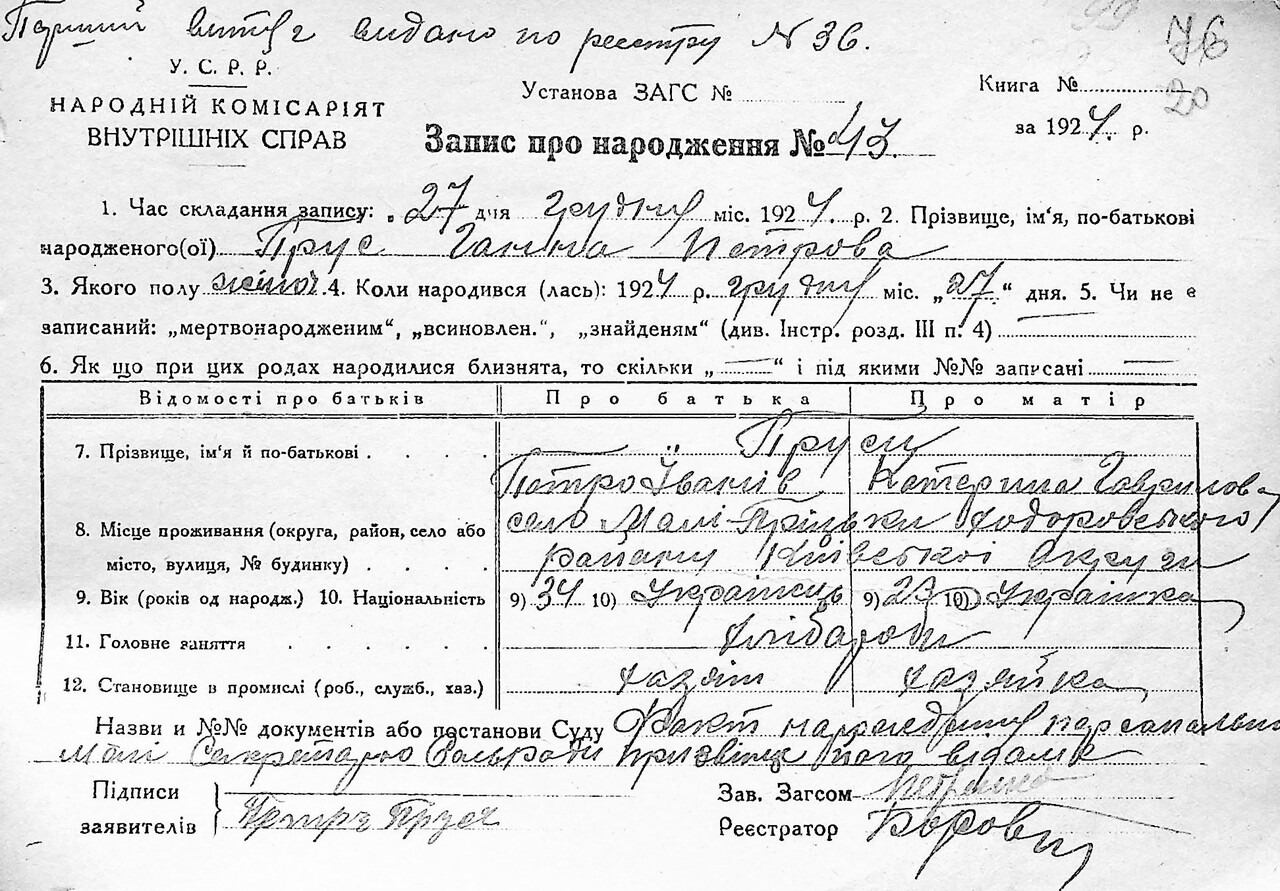 Перший витяг видано по реєстру N 36.
У. С. Р. Р.
НАРОДНІЙ КОМІСАРІЯТ
ВНУТРІШНІХ СПРАВ
Установа ЗАГС №
Книга №
за 1924 р.
20
Запис про народження № 43.
1. Час складання запису: „27 дня грудня міс. 1924. р. 2. Прізвище, ім‘я, по-батькові
народженого(ої) Прус Ганна Петрова
3. Якого полу жіноч. 4. Коли народився (лась): 1924 р. грудня міс. „27“ дня. 5. Чи не є
записаний: „мертвонародженим“, „всиновлен.“, „знайденям“ (див. Інстр. розд. III п. 4)
6. Як що при цих родах народилися близнята, то скільки „ “ і під якими №№ записані
Відомості про батьків Про батька Про матір
7. Прізвище, ім‘я й по-батькові Пруси
Петро Іванів Катерина Гаврилова
8. Місце проживання (округа, район, село або село Малі-Пріцьки Ходоровського
місто, вулиця, № будинку) району Київської Округи
9. Вік (років од народж.) 10. Національність 9) 34 10) Українець 9) 23 10) Українка
11. Головне заняття хлібароби
12. Становище в промислі (роб., служб., хаз.) хазяїн хазяйка
Назви и №№ документів або постанови Суду Факт народження персонально
мені Секретарю Сельради
Підписи
заявителів Петръ Прусъ
Зав. Загсом
Реєстратор